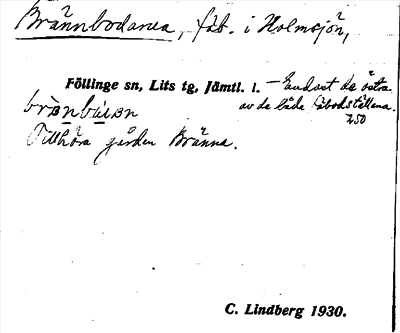 Brännbodarna, fäb. i Holmsjön,
Föllinge sn, Lits tg, Jämtl. l. — Endast de östra
av de båda fäbodställena.
250
Tillhöra gården Bränna.
C. Lindberg 1930.